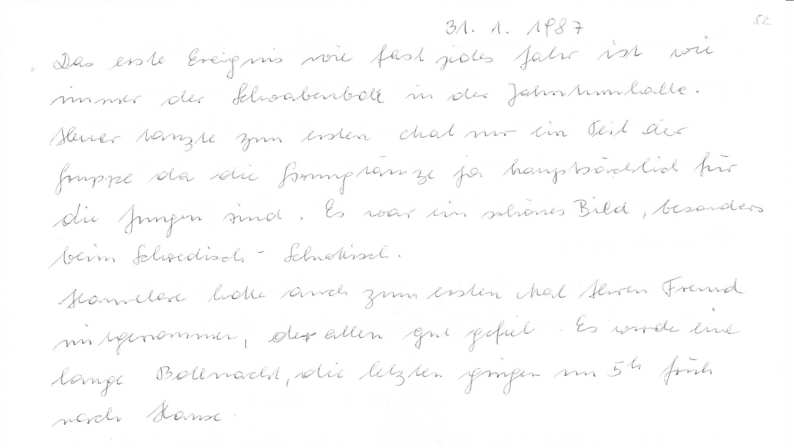 31. 1. 1987
52
Das erste Ereignis wie fast jedes Jahr ist wie
immer der Schwabenball in der Jahnturnhalle.
Heuer tanzte zum ersten Mal nur ein Teil der
Gruppe da die Formtänze ja hauptsächlich für
die Jungen sind. Es war ein schönes Bild, besonders
beim Schwedisch-Schottisch.
Hannelore hatte auch zum ersten Mal Ihren Freund
mitgenommen, der allen gut gefiel. Es wurde eine
lange Ballnacht, die letzten gingen um 5h früh
nach Hause.